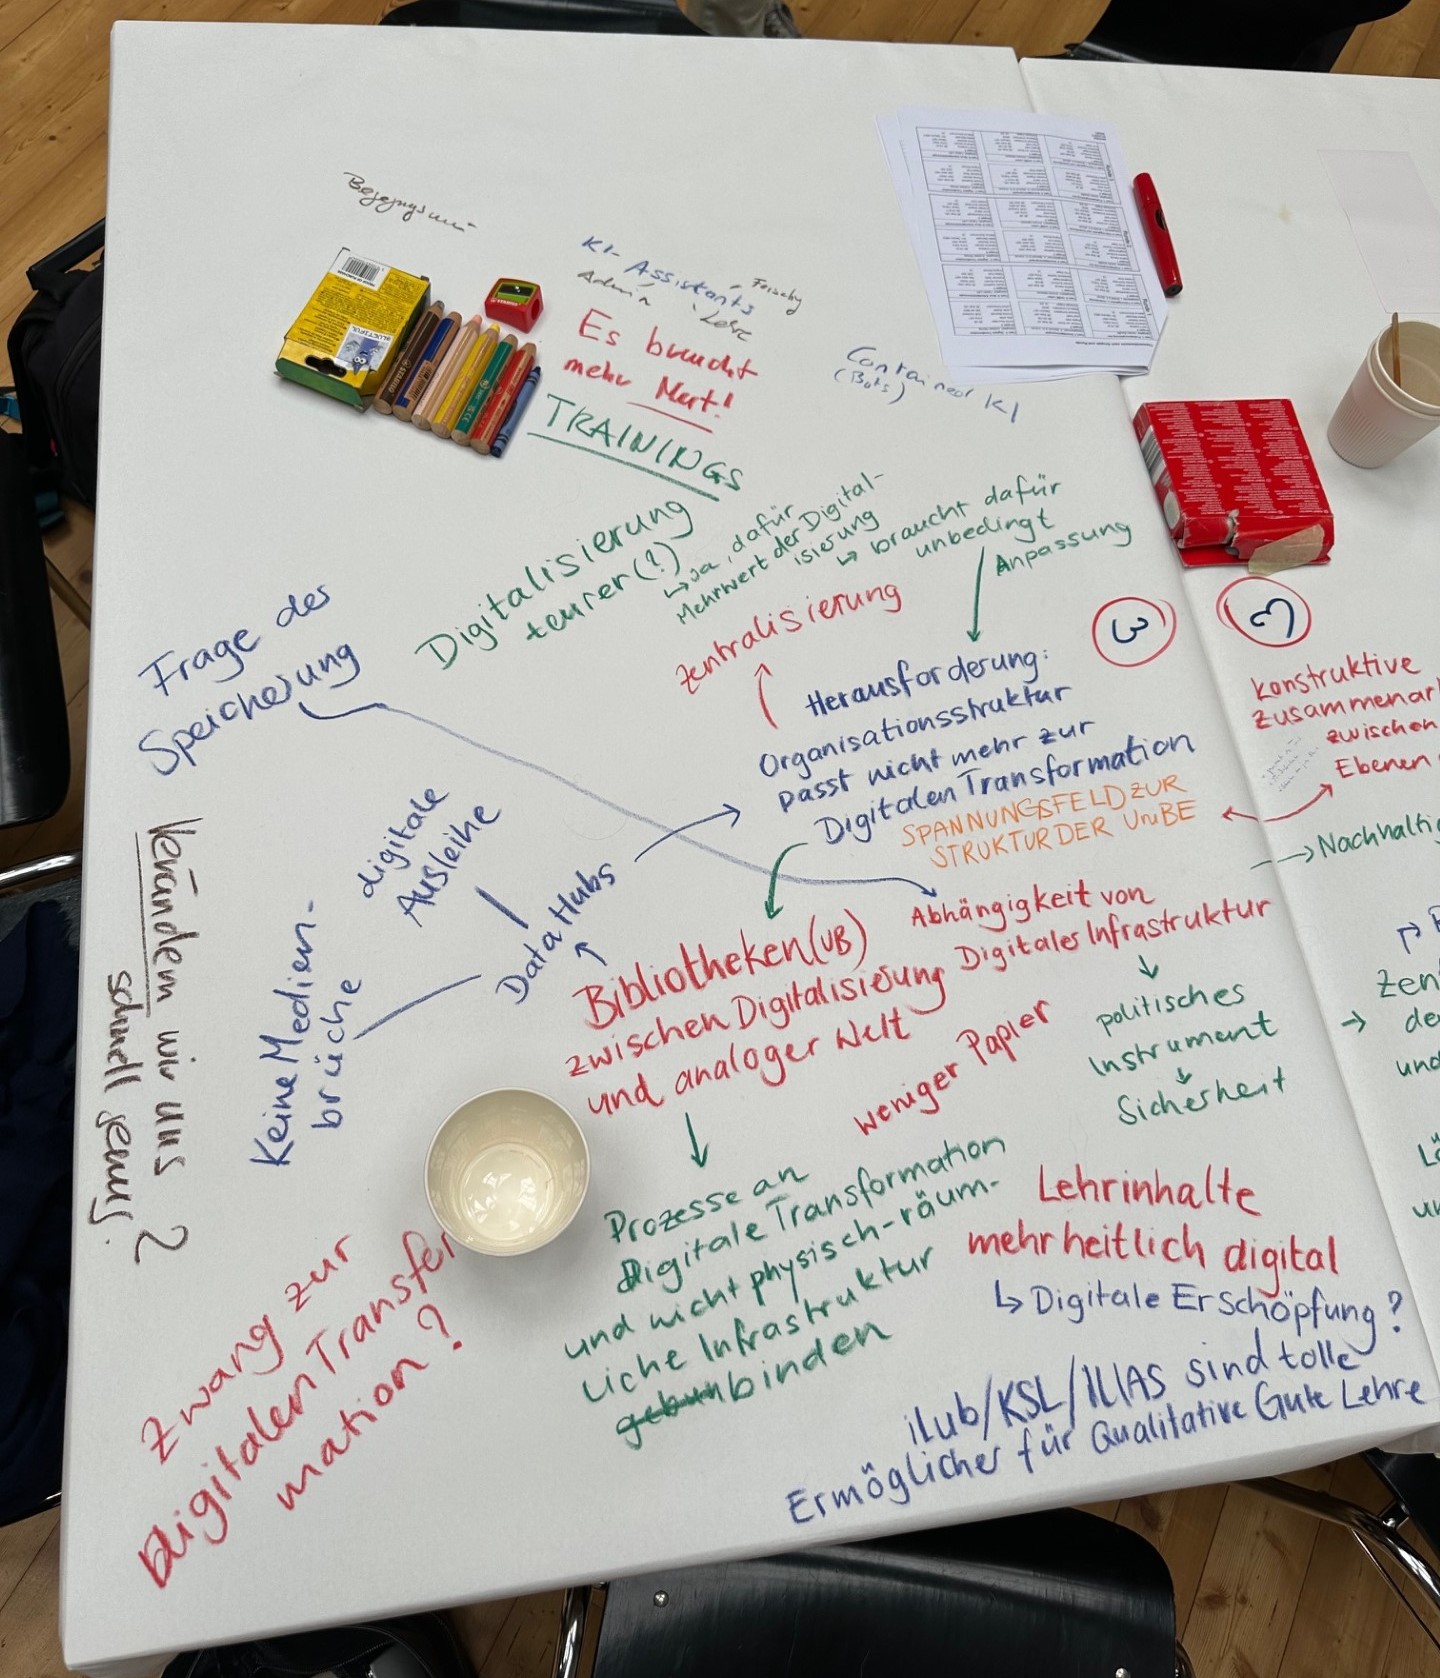 KI-Assistants
Admin
Lehre
Es braucht
mehr Mut!
TRAININGS
Container KI
(Bots)
Digitalisierung
teurer(?)
↳ Ja, dafür
Mehrwert der Digital-
isierung
↳ braucht dafür
unbedingt
Anpassung
Zentralisierung
3
Herausforderung:
Organisationsstruktur
passt nicht mehr zur
Digitalen Transformation
SPANNUNGSFELD ZUR
STRUKTUR DER UniBE
3
Konstruktive
Zusammenar
zwischen
Ebenen
→ Nachhaltig
Frage der
Speicherung
digitale
Ausleihe
Data Hubs
Keine Medien-
brüche
Verändern wir uns
schnell genug?
Abhängigkeit von
Digitales Infrastruktur
politisches
Instrument
Sicherheit
Bibliotheken (UB)
zwischen Digitalisierung
und analoger Welt
weniger Papier
Prozesse an
Digitale Transformation
und nicht physisch-räum-
liche Infrastruktur
binden
Zwang zur
Digitalen Transfor
mation?
Lehrinhalte
mehrheitlich digital
↳ Digitale Erschöpfung?
iLub/KSL/ILIAS sind tolle
Ermöglicher für Qualitative Gute Lehre
Zen
de
und